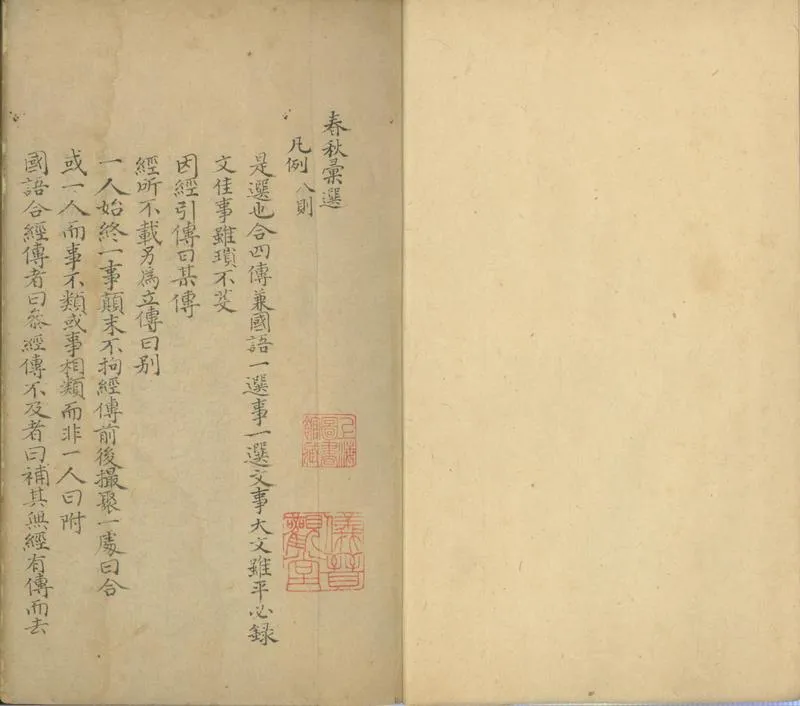 春秋彙選
凡例八則
是選也合四傳兼國語一選事一選文事大文雖平必録
文佳事雖瑣不芟
因經引傳曰某傳
經所不載另爲立傳曰别
一人始終一事顛末不拘經傳前後撮聚一處曰合
或一人而事不類或事相類而非一人曰附
國語合經傳者曰叅經傳不及者曰補其無經有傳而去
圖書
觀堂